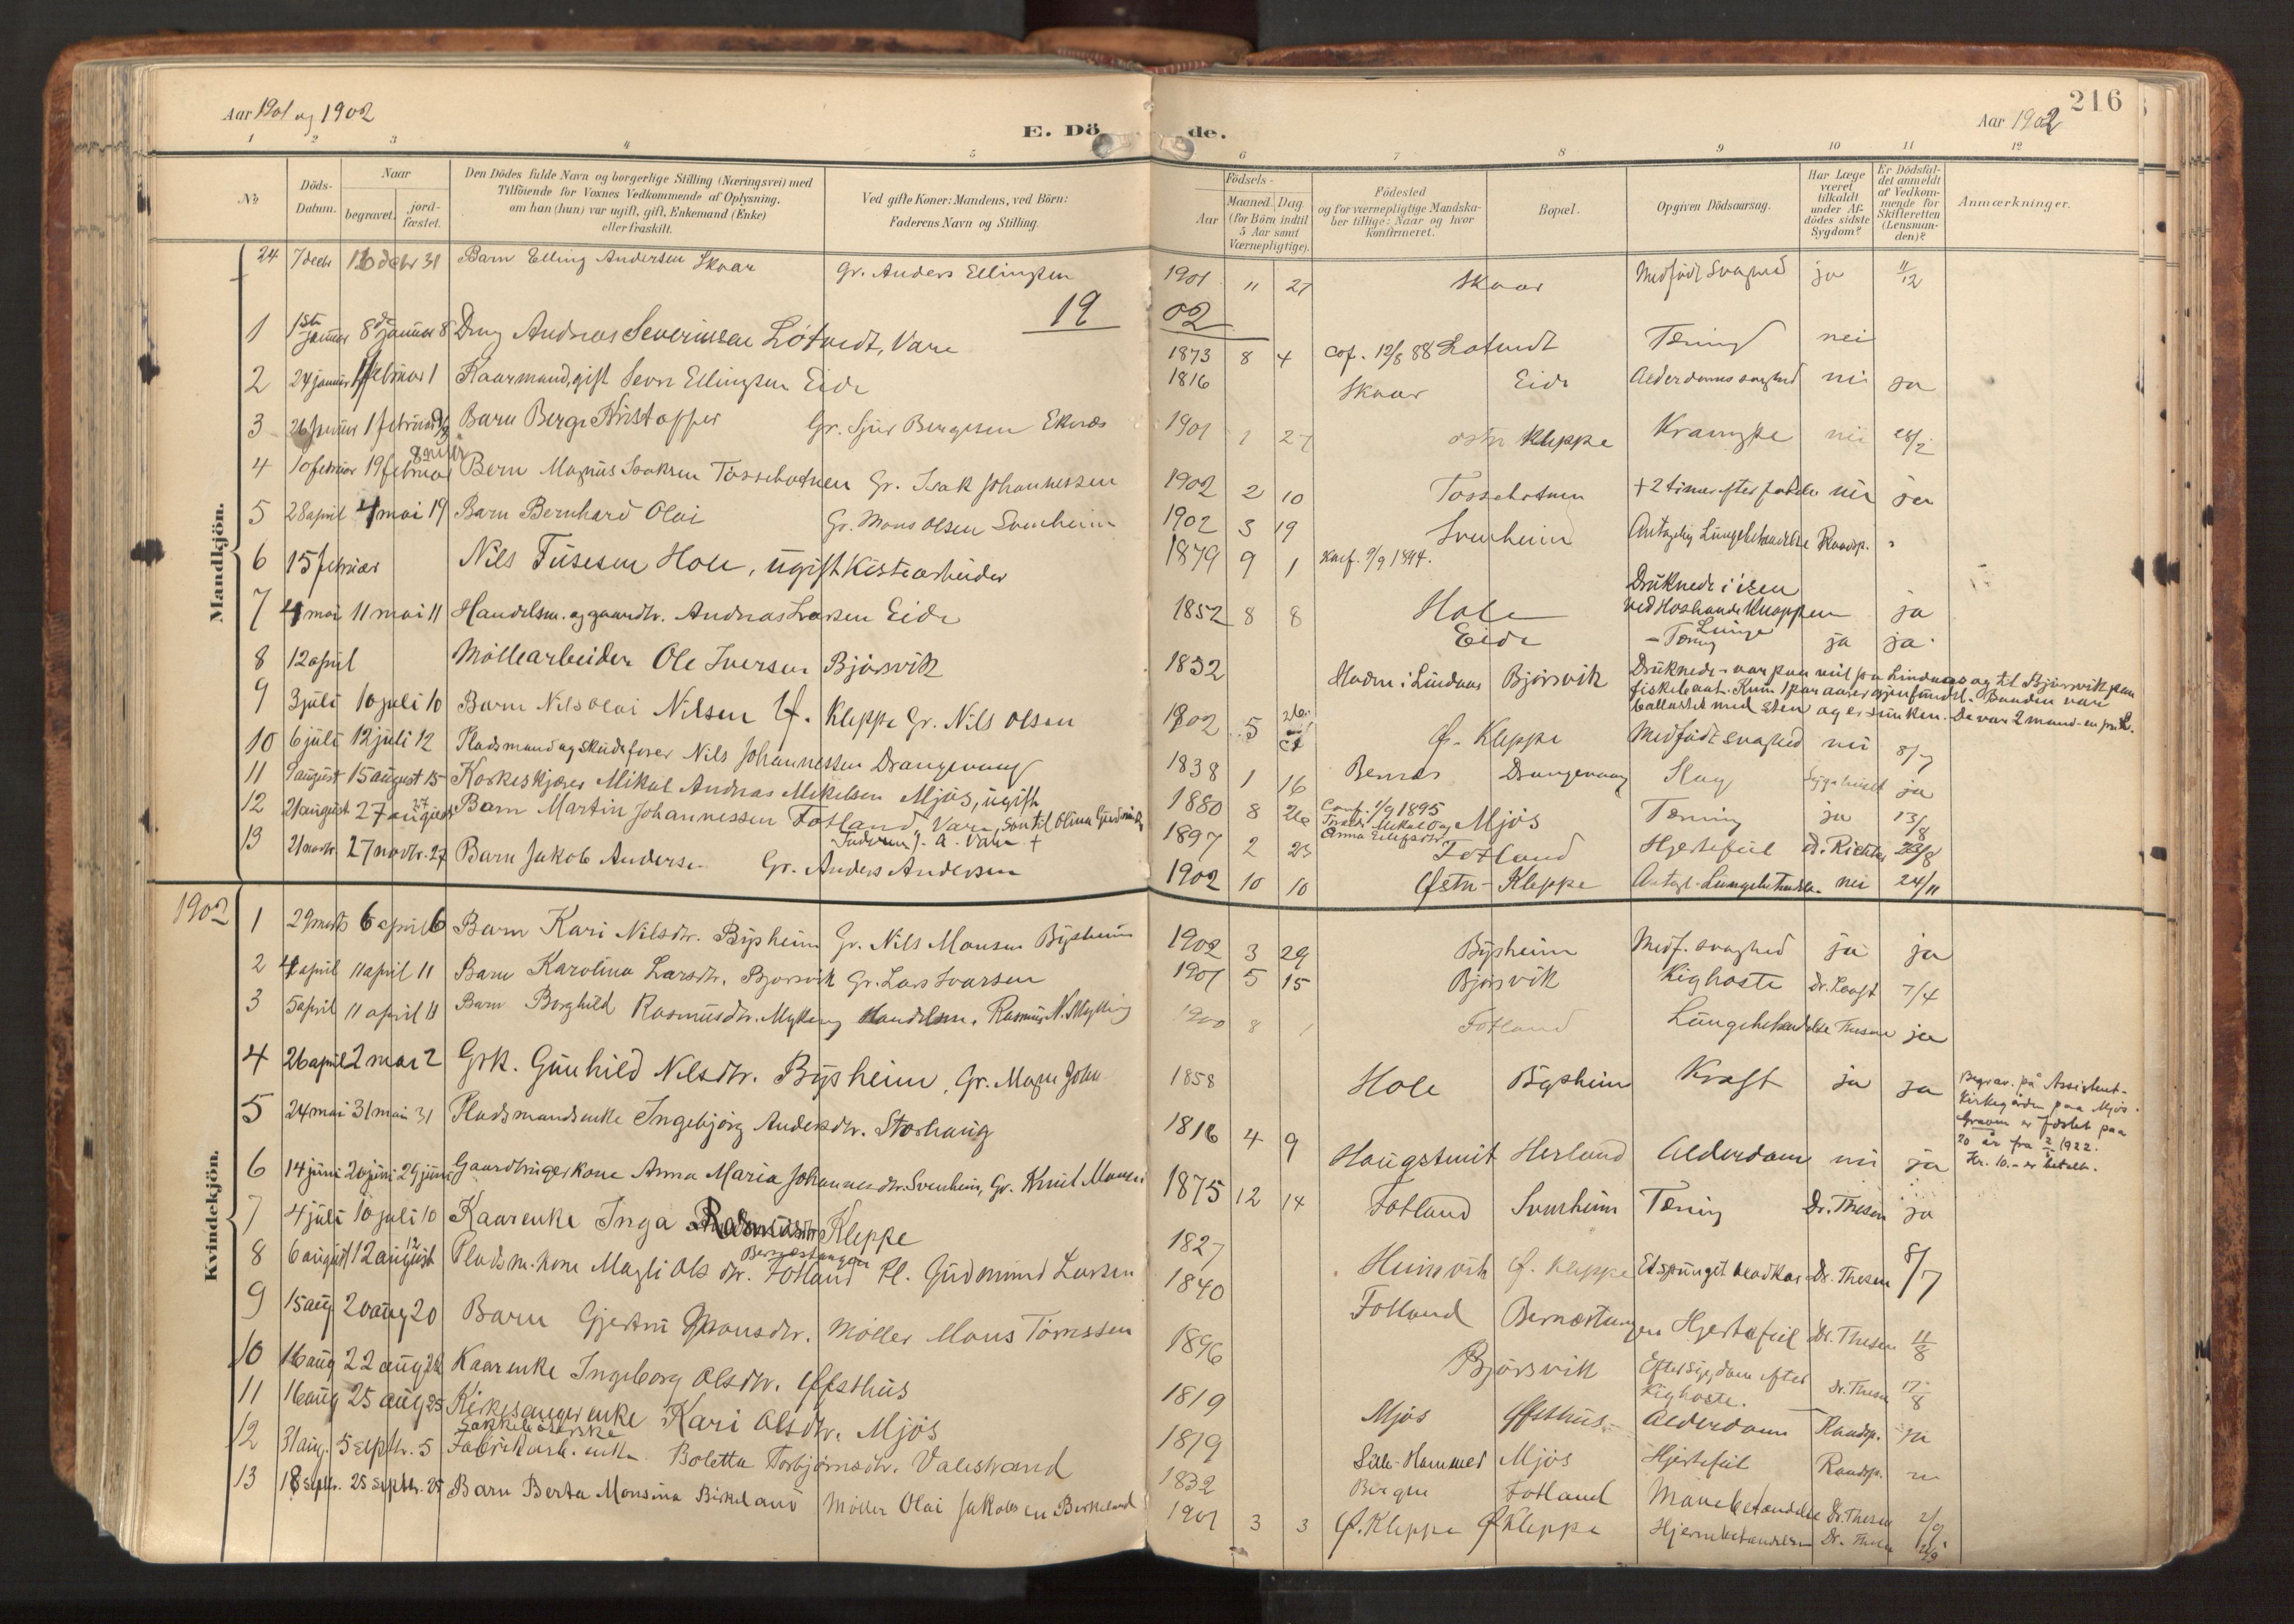 Aar 1901 og 1902
E. Dö de.
Aar 1902
216
1 2 3 4 5 6 7 8 9 10 11 12
No
Döds-Datum.
Naar
begravet.
jord-fæstet.
Den Dödes fulde Navn og borgerlige Stilling (Næringsvei) med
Tilföiende for Voxnes Vedkommende af Oplysning,
om han (hun) var ugift, gift, Enkemand (Enke)
eller fraskilt.
Ved gifte Koner: Mandens, ved Börn:
Faderens Navn og Stilling.
Födsels-
Aar
Maaned. Dag.
(for Börn indtil
5 Aar samt
Værnepligtige).
Födested
og for værnepligtige Mandska-
ber tillige: Naar og hvor
Konfirmeret.
Bopæl.
Opgiven Dödsaarsag.
Har Læge
været
tilkaldt
under Af-
dödes sidste
Sygdom?
Er Dödsfal-
det anmeldt
af Vedkom-
mende for
Skifteretten
(Lensman-
den)?
Anmærkninger.
Mandkjön.
24 7 decbr decbr 31 Barn Elling Andersen Skaar Gr. Anders Ellingsen 1901 11 27 Skaar Medfødt Svaghed ja 11/12
1902
1 1ste januar 8de januar 8 Dreng Andreas Severinsen Løtvedt, Vare 1873 8 4 Cof. 12/8 88 Løtvedt Tæring nei
2 24 januar 1 februar 1 Kaarmand, gift Sevrin Ellingsen Eide 1816 Skaar Eide Alderdomssvaghed nei ja
3 26 januar 1 februar Barn Berge Kristoffer Gr. Sjur Bergesen Eknæs 1901 1 27 østre Kleppe Krampe nei 28/2
4 10 februar 19 februar Barn Magnus Isaksen Tossebotnen Gr. Isak Johannessen 1902 2 10 Tossebotnen + 2 timer efter fødsln nei ja
5 28 april 4 mai 19 Barn Bernhard Olai Gr. Mons Olsen Svenheim 1902 3 19 Svenheim Antagelig Lungebetændelse Raadsp. "
6 15 februar Nils Tusesen Hole, ugift Kistearbeider 1879 9 1 Konf. 9/9 1894. Hole Druknede i isen ved Hoshaude Knappen ja
7 4 mai 11 mai 11 Handelsm. og gaardbr. Andreas Larsen Eide 1852 8 8 Eide Lunge - Tæring ja ja
8 12 april Møllearbeider Ole Iversen Bjørsvik 1832 i Lindaas Bjørsvik Druknede - var paa veie fra Lindaas og til Bjørsvik paa
fiskebaat. Kun 1 par aarer gjenfundet. Baaden var
ballastet med Sten og er sunken. De var 2 mand
9 3 juli 10 juli 10 Barn Nils Olai Nilsen Ø. Kleppe Gr. Nils Olsen 1902 5 26 Ø. Kleppe Medfødt svaghed nei 8/7
10 6 juli 12 juli 12 Pladsmand og skydsfører Nils Johannessen Drangevaag 1838 1 16 Bernæs Drangevaag Slag Sygehuset ja
11 9 august 15 august 15 Korkeskjærer Mikal Andreas Mikelsen Mjøs, ugift 1880 8 26 Conf. 1/9 1895 Mjøs Tæring ja 13/8
12 21 august 27 august 27 Barn Martin Johannessen Fotland, Vare, Søn til Olina Gudmdr. 1897 2 23 Fotland Hjertefeil D. Richter 23/8
13 21 novbr. 27 novbr. 27 Barn Jakob Andersen Gr. Anders Andersen 1902 10 10 Østre-Kleppe Antagl. Lungebetændelse nei 24/11
Kvindekjön.
1902
1 29 marts 6 april 6 Barn Kari Nilsdtr. Bysheim Gr. Nils Monsen Bysheim 1902 3 29 Bysheim Medf. svaghed ja ja
2 4 april 11 april 11 Barn Karolina Larsdtr. Bjørsvik Gr. Lars Ivarsen 1901 5 15 Bjørsvik Kighoste Dr. 7/4
3 5 april 11 april 11 Barn Borghild Rasmusdtr. Mykking Handelsm. Rasmus N. Mykking 1900 8 1 Fotland Lungebetændelse Thesen ja
4 26 april 2 mai 2 Grk. Gunhild Nilsdtr. Bysheim, Gr. Magne John 1858 Hole Bysheim Kræft ja ja
Begrav. på Assistent-
kirkegården paa Mjøs.
Graven er fæstet paa
20 år fra 2/1 1922.
Kr. 10.- er betalt.
5 24 mai 31 mai 31 Pladsmandsenke Ingebjørg Andersdtr. Storhaug 1816 4 9 Haugstveit Herland Alderdom nei ja
6 14 juni 20 juni 29 juni Gaardbrugerkone Anna Maria Johannesdtr. Svenheim, Gr. Knut Monsen 1875 12 14 Fotland Svenheim Tæring Dr. Thesen ja
7 4 juli 10 juli 10 Kaarenke Inga Rasmusdtr Kleppe 1827 Heimvik Ø. Kleppe Et sprunget blodkar Dr. Thesen 8/7
8 6 august 12 august 12 Pladsm. kone Magli Olsdtr. Fotland Bernæstangen Pl. Gudmund Larsen 1840 Fotland Bernæstangen Hjertefeil Dr. Thesen 11/8
9 15 aug 20 aug 20 Barn Gjertrui Monsdtr. Møller Mons Tomssen 1896 Bjørsvik Eftersygdom efter Kighoste. Dr. Thesen 17/8
10 16 aug 22 aug 22 Kaarenke Ingeborg Olsdtr. Øfsthus 1819 Mjøs Øfsthus Alderdom Raadsp. ja
11 16 aug 25 aug 25 Kirkesangerenke Kari Olsdtr. Mjøs 1819 Lille-Hammer Mjøs Hjertefeil Raadsp.
12 31 aug. 5 septbr. 5 Fabrikarb. enke Boletta Torbjørnsdtr. Valestrand 1832 Bergen Fotland Mavebetændelse Dr. Thesen 2/9
13 18 septbr. 25 septbr. 25 Barn Berta Monsina Birkeland Møller Olai Jakobsen Birkeland 1901 3 3 Ø. Kleppe Ø Kleppe Hjernebetændelsen Dr. Thesen